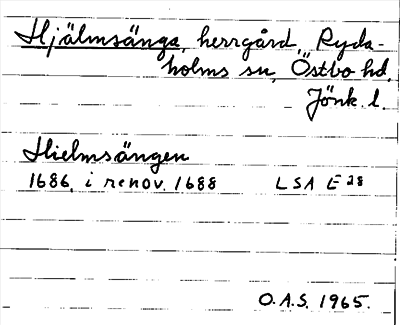 Hjälmsänga, herrgård, Ryda-
holms sn, Östbo hd,
Jönk. l.
Hielmsängen
1686, i renov. 1688 LSA E 28
O.A.S. 1965.